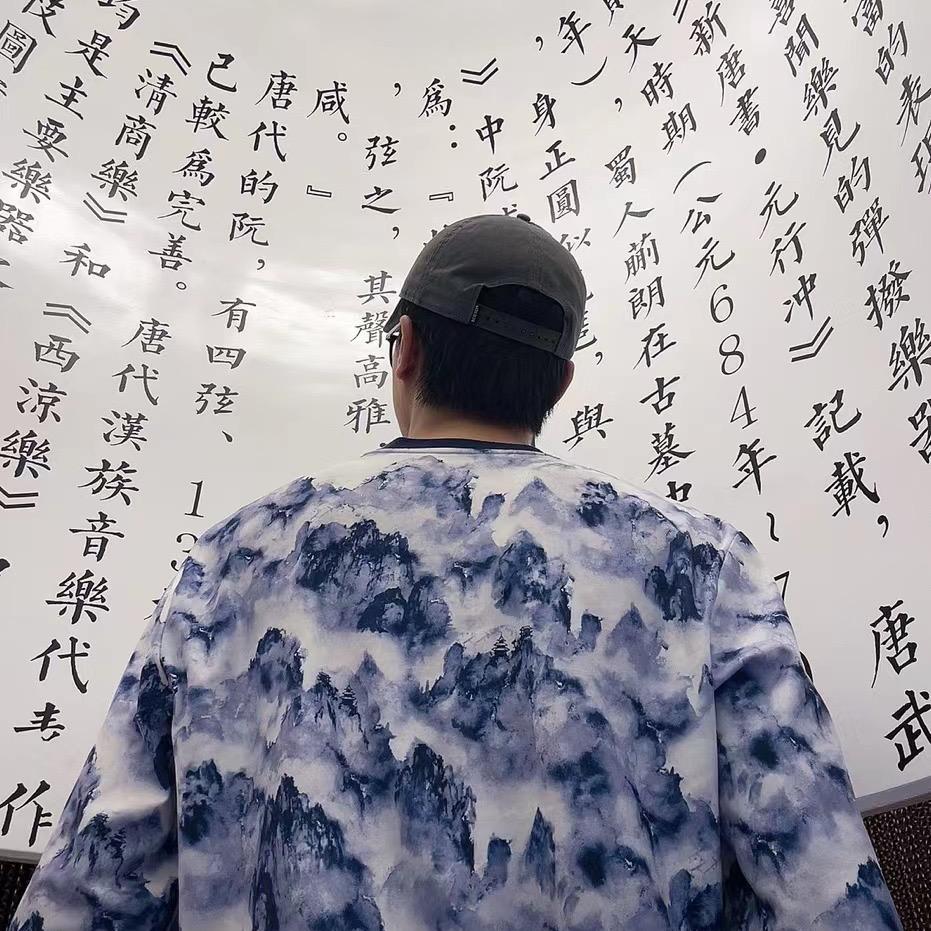 富的表現
喜聞樂見的彈撥樂器
《新唐書•元行冲》記載，唐武
天時期（公元684年~7
年），蜀人蒯朗在古墓中
，身正圓似 ，與
》中阮
爲：『
，弦之，其聲高雅
咸。』
唐代的阮，有四弦、13
已較爲完善。唐代漢族音樂代表作
《清商樂》和《西涼樂》
均是主要樂器之
圖